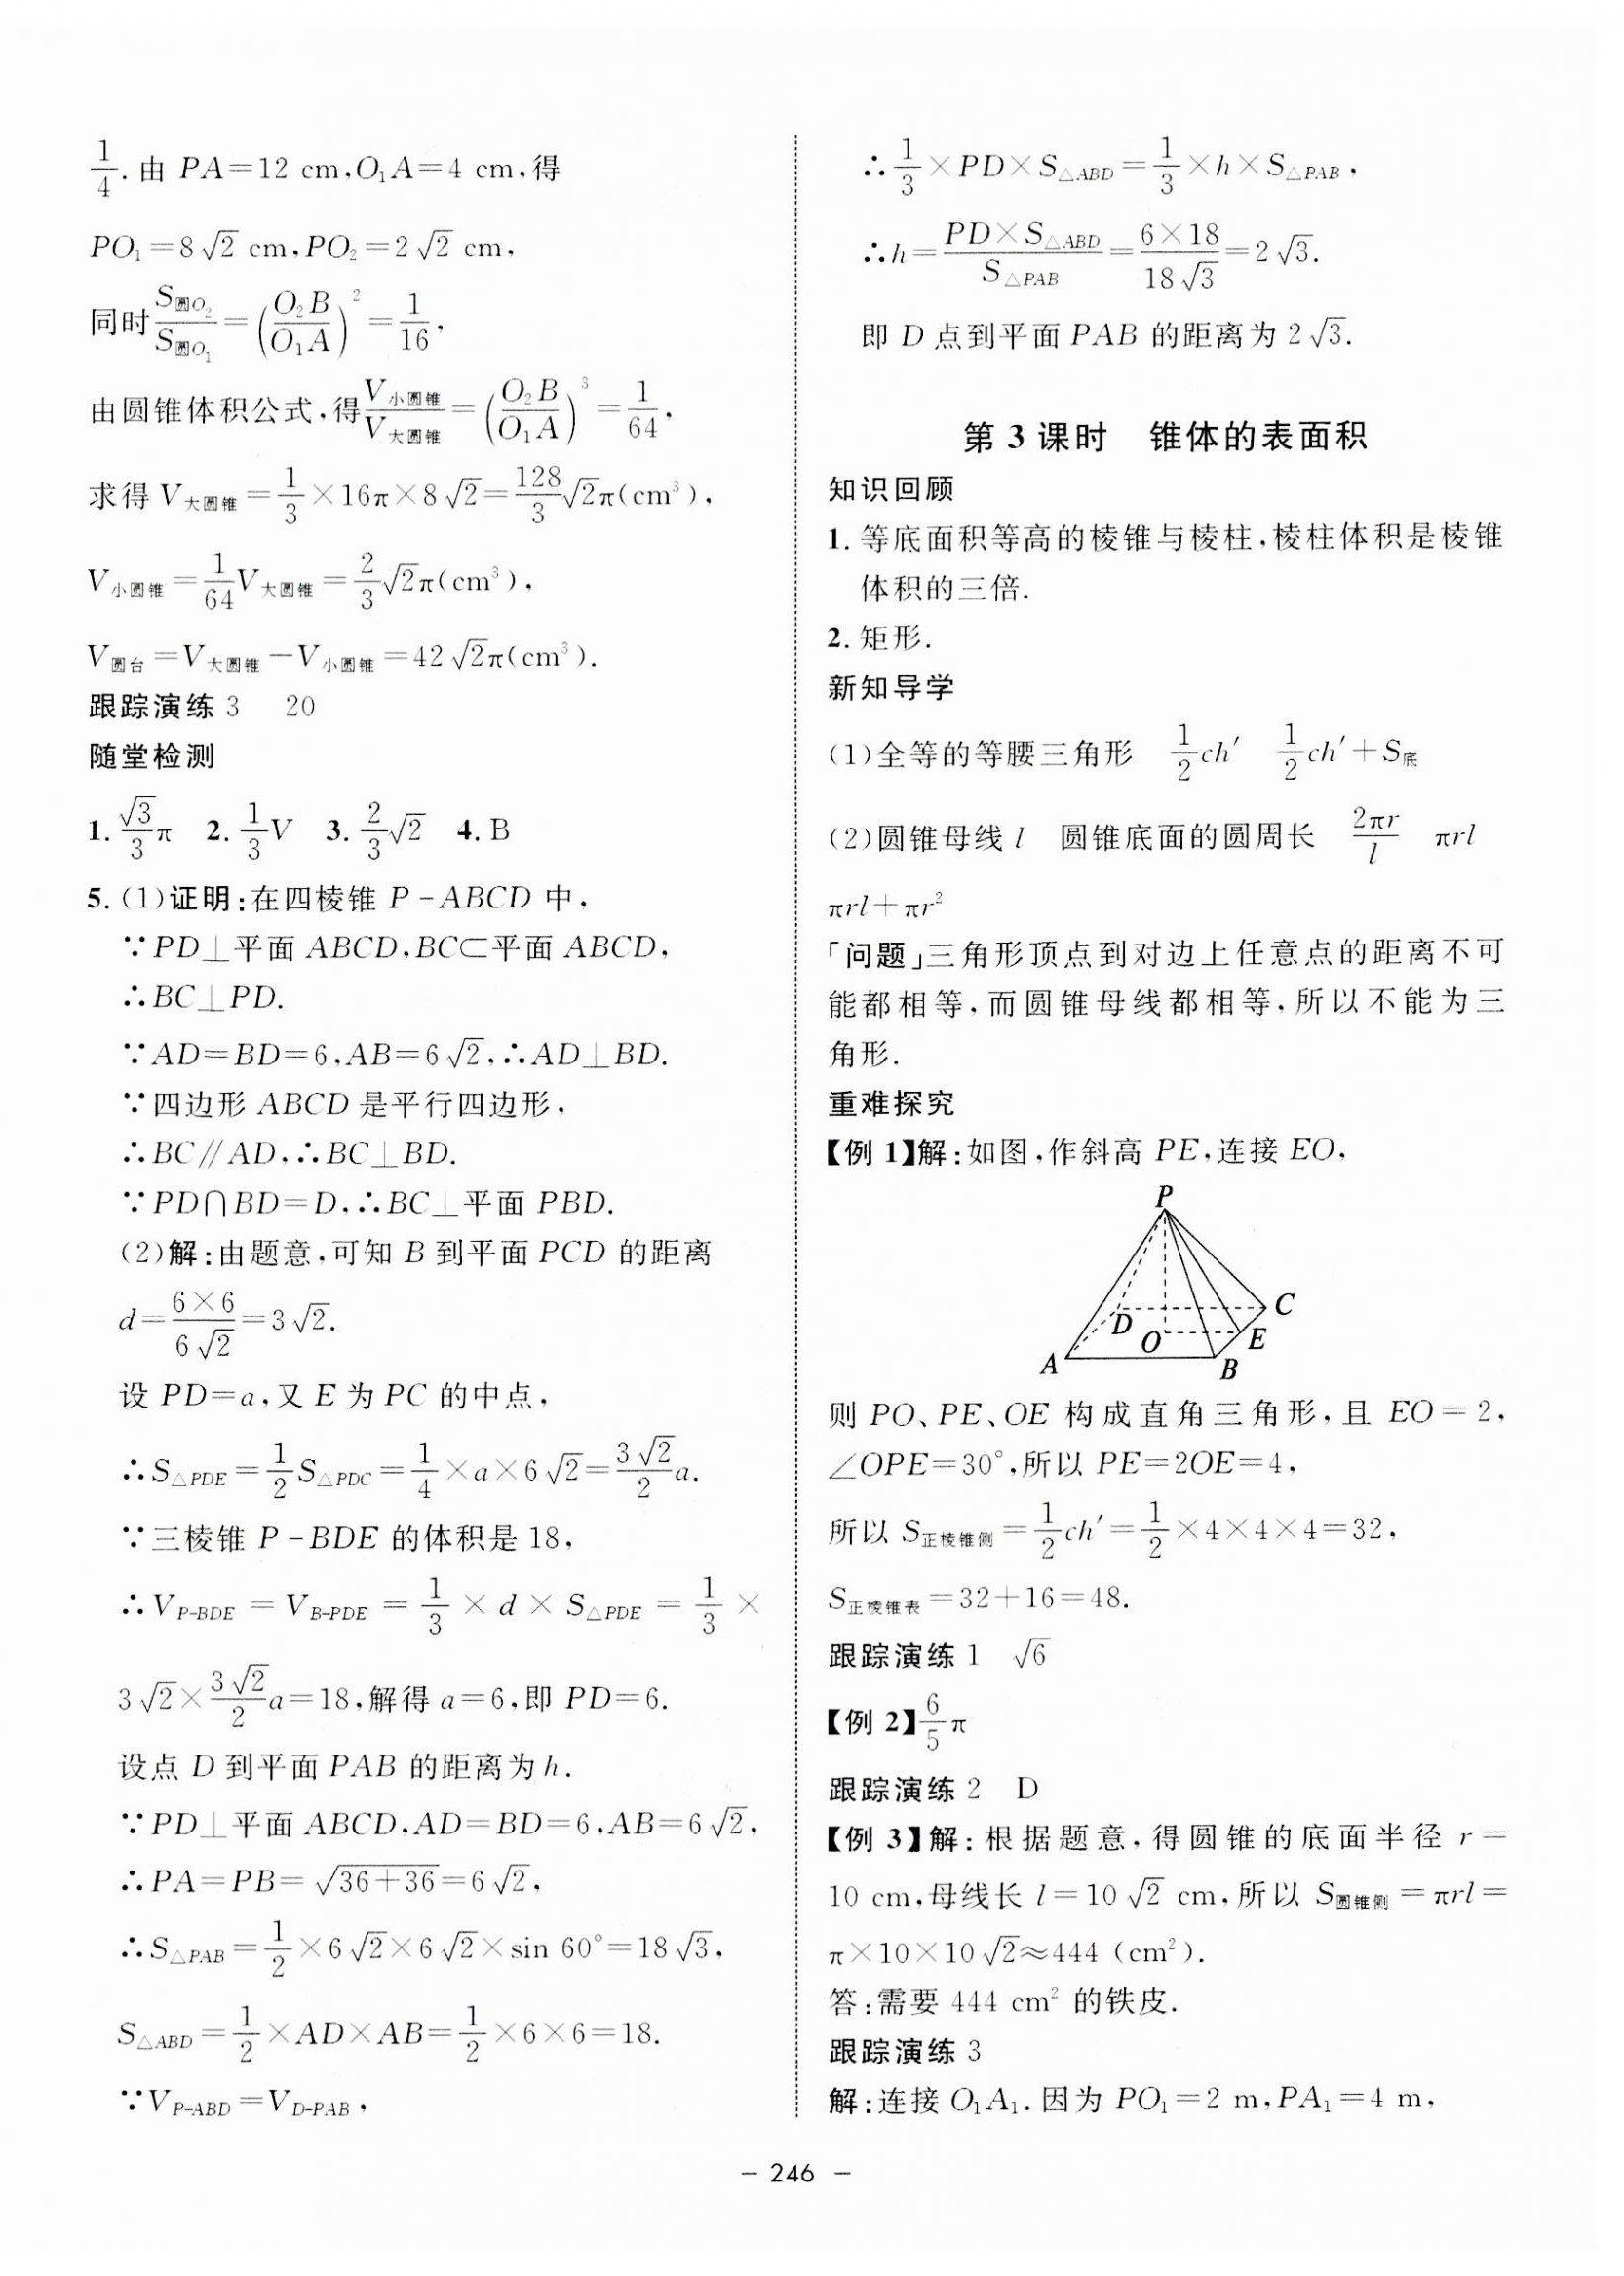 1/4.由 PA=12 cm,O₁A=4 cm,得
PO₁=8√2 cm,PO₂=2√2 cm,
同时S圆O₂/S圆O₁=(O₂B/O₁A)²=1/16,
由圆锥体积公式,得V小圆锥/V大圆锥=(O₂B/O₁A)³=1/64,
求得 V大圆锥=1/3×16π×8√2=128/3√2π(cm³),
V小圆锥=1/64V大圆锥=2/3√2π(cm³),
V圆台=V大圆锥-V小圆锥=42√2π(cm³).
跟踪演练 3 20
随堂检测
1.√3/3π 2.1/3V 3.2/3√2 4.B
5.(1)证明:在四棱锥 P-ABCD 中,
∵PD⊥平面 ABCD,BC⊂平面 ABCD,
∴BC⊥PD.
∵AD=BD=6,AB=6√2,∴AD⊥BD.
∵四边形 ABCD 是平行四边形,
∴BC∥AD,∴BC⊥BD.
∵PD∩BD=D,∴BC⊥平面 PBD.
(2)解:由题意,可知 B 到平面 PCD 的距离
d=6×6/6√2=3√2.
设 PD=a,又 E 为 PC 的中点,
∴S△PDE=1/2S△PDC=1/4×a×6√2=3√2/2a.
∵三棱锥 P-BDE 的体积是 18,
∴VP-BDE=VB-PDE=1/3×d×S△PDE=1/3×
3√2×3√2/2a=18,解得 a=6,即 PD=6.
设点 D 到平面 PAB 的距离为 h.
∵PD⊥平面 ABCD,AD=BD=6,AB=6√2,
∴PA=PB=√36+36=6√2,
∴S△PAB=1/2×6√2×6√2×sin 60°=18√3,
S△ABD=1/2×AD×AB=1/2×6×6=18.
∵VP-ABD=VD-PAB,
∴1/3×PD×S△ABD=1/3×h×S△PAB,
∴h=PD×S△ABD/S△PAB=6×18/18√3=2√3.
即 D 点到平面 PAB 的距离为 2√3.
第 3 课时 锥体的表面积
知识回顾
1.等底面积等高的棱锥与棱柱,棱柱体积是棱锥
体积的三倍.
2.矩形.
新知导学
(1)全等的等腰三角形 1/2ch′ 1/2ch′+S底
(2)圆锥母线 l 圆锥底面的圆周长 2πr/l πrl
πrl+πr²
「问题」三角形顶点到对边上任意点的距离不可
能都相等,而圆锥母线都相等,所以不能为三
角形.
重难探究
【例 1】解:如图,作斜高 PE,连接 EO,
P
C
D
O
E
A
B
则 PO、PE、OE 构成直角三角形,且 EO=2,
∠OPE=30°,所以 PE=2OE=4,
所以 S正棱锥侧=1/2ch′=1/2×4×4×4=32,
S正棱锥表=32+16=48.
跟踪演练 1 √6
【例 2】6/5π
跟踪演练 2 D
【例 3】解:根据题意,得圆锥的底面半径 r=
10 cm,母线长 l=10√2 cm,所以 S圆锥侧=πrl=
π×10×10√2≈444 (cm²).
答:需要 444 cm² 的铁皮.
跟踪演练 3
解:连接 O₁A₁.因为 PO₁=2 m,PA₁=4 m,
- 246 -